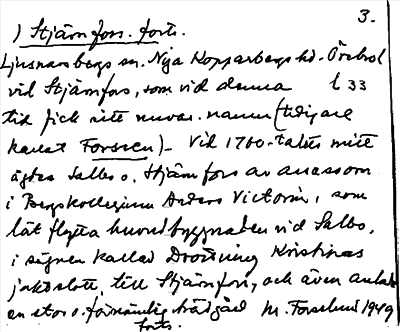 3.
) Stjärnfors. forts.
Ljusnarsbergs sn. Nya Kopparbergs hd. Örebro l
vid Stjärnfors, som vid denna l 33
tid fick sitt nuvar. namn (tidigare
kallat Forssen) – Vid 1760-talets mitt
ägdes Salbo o. Stjärnfors av assessorn
i Bergskollegium Anders Victorin, som
lät flytta huvudbyggnaden vid Salbo,
i sägnen kallad Drottning Kristinas
jaktslott, till Stjärnfors, och även anlade
en stor o. förnämlig trädgård M. Forslund 1949
forts.